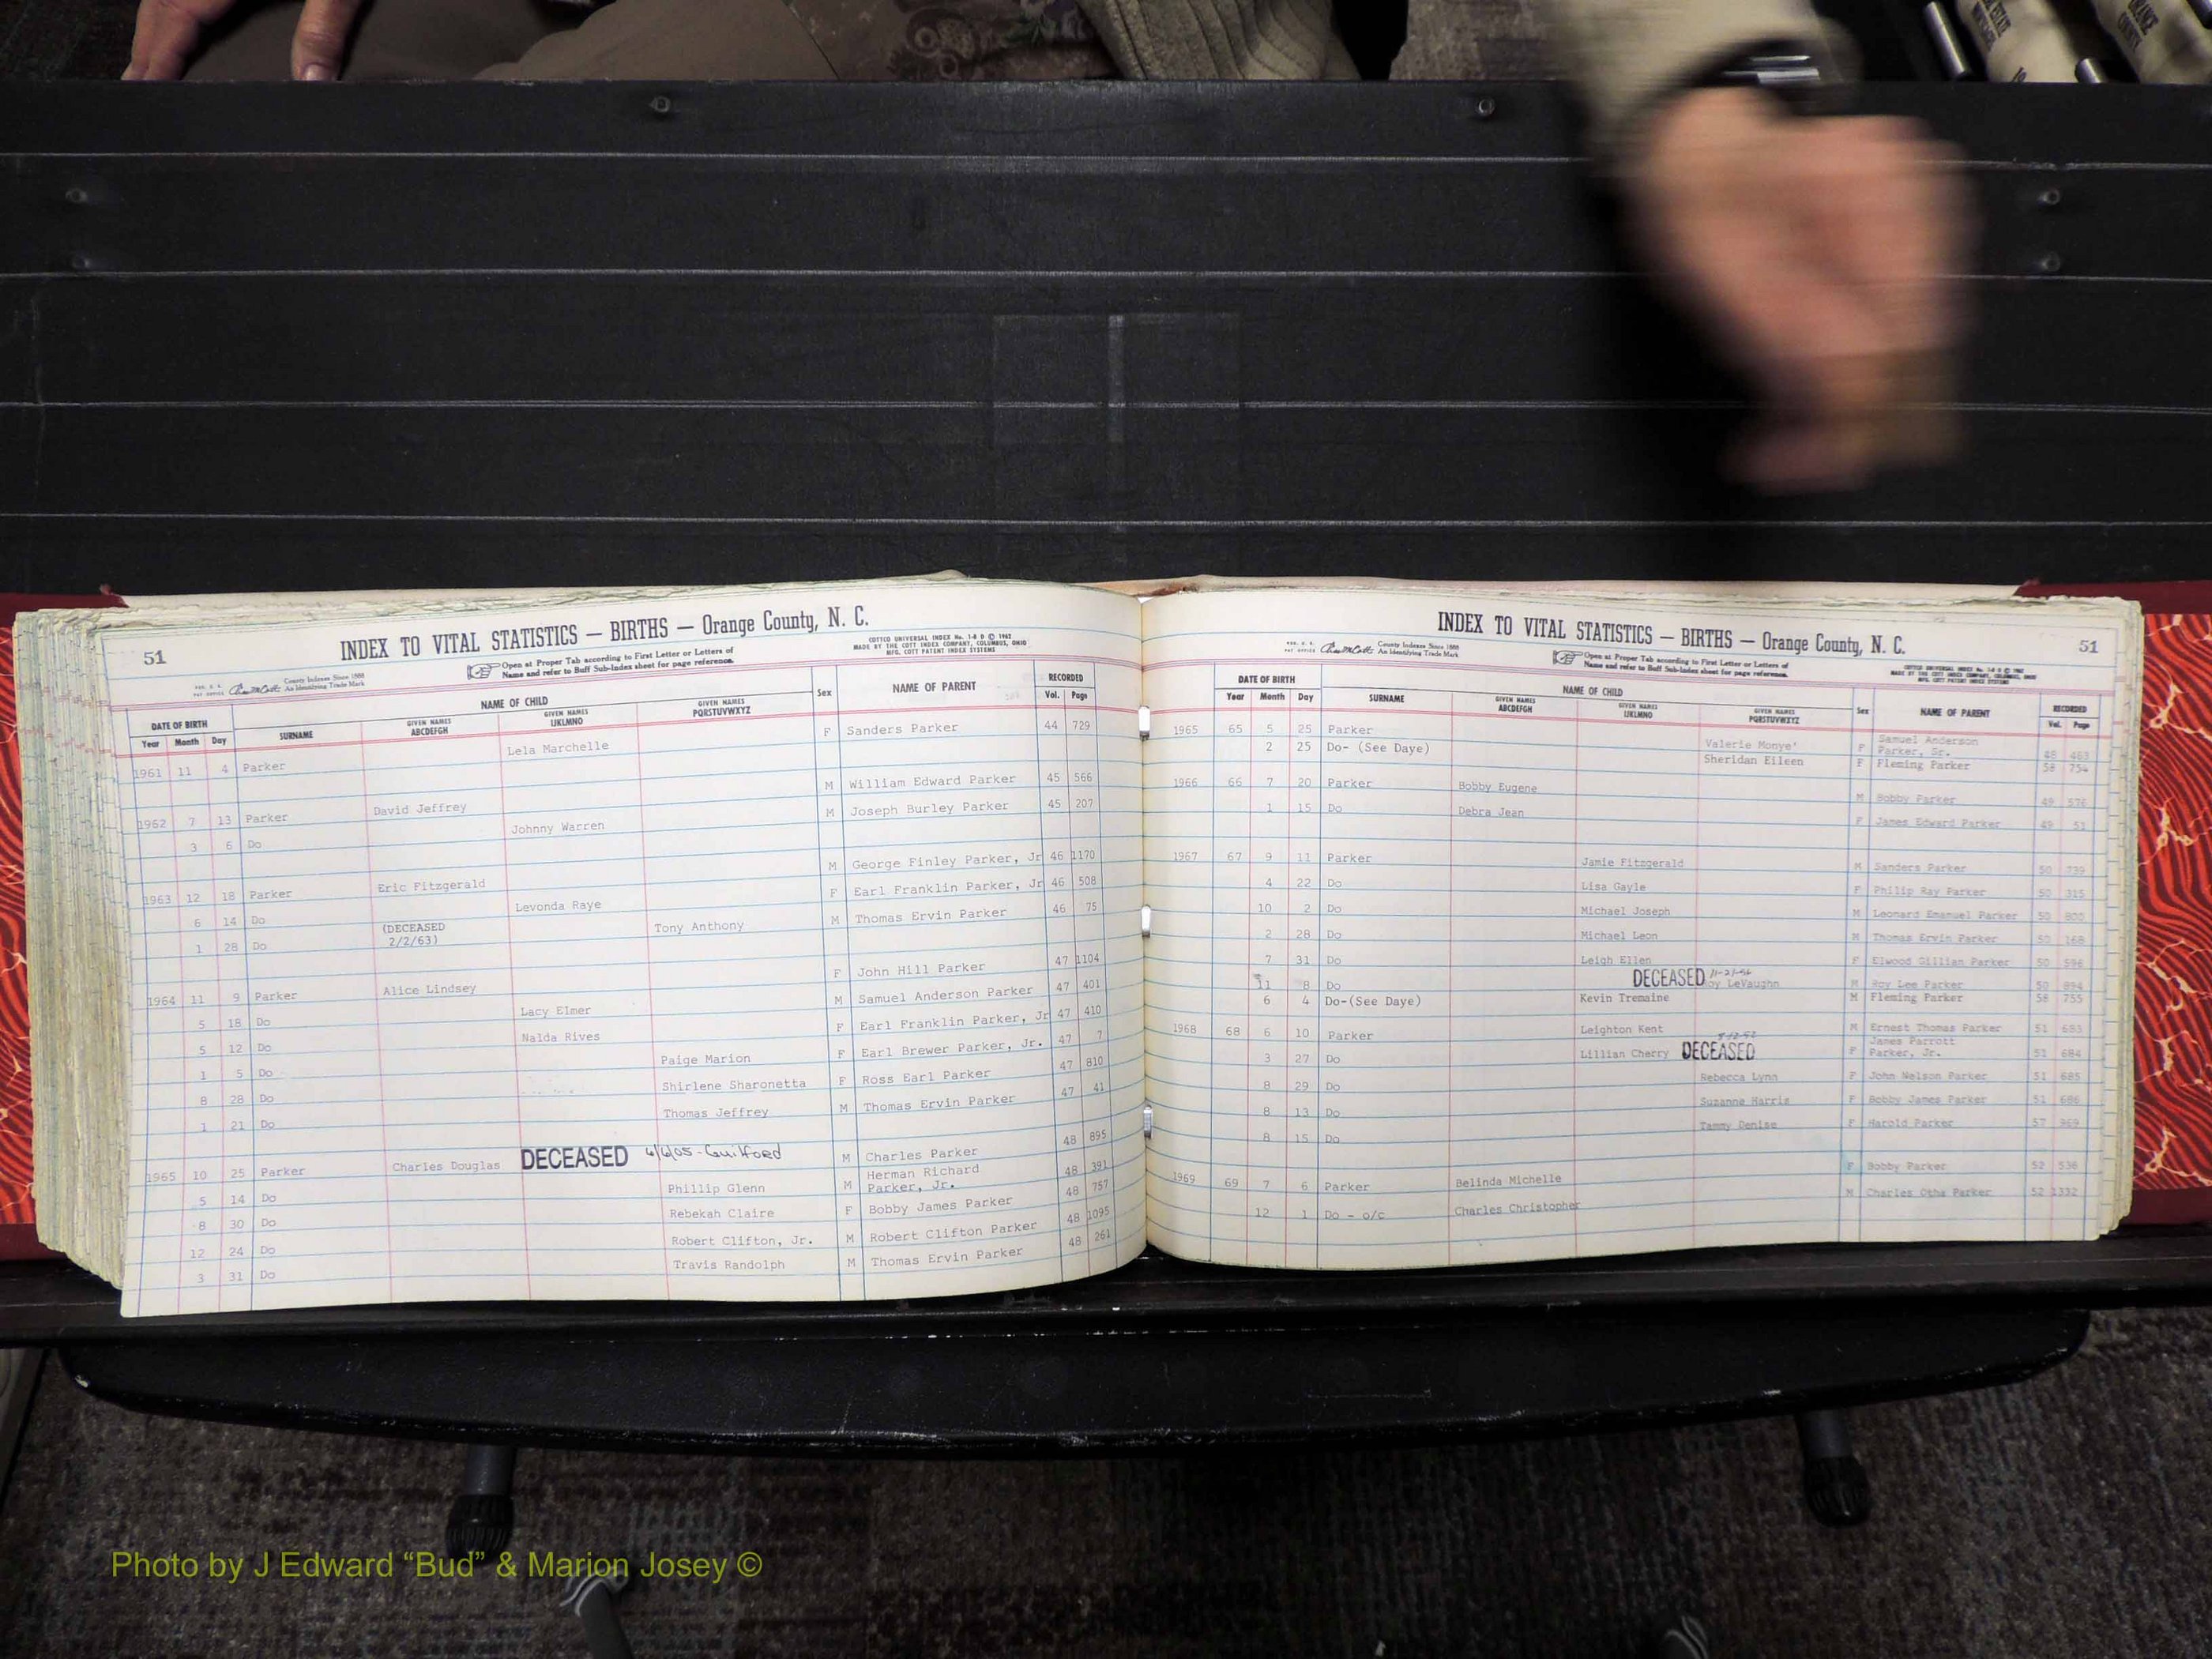 INDEX TO VITAL STATISTICS — BIRTHS — Orange County, N. C.
51
COTTCO UNIVERSAL INDEX No. 1-8 D © 1962
MADE BY THE COTT INDEX COMPANY, COLUMBUS, OHIO
MFG. COTT PATENT INDEX SYSTEMS
County Indexes Since 1888
An Identifying Trade Mark
Open at Proper Tab according to First Letter or Letters of
Name and refer to Buff Sub-Index sheet for page reference.
DATE OF BIRTH NAME OF CHILD Sex NAME OF PARENT RECORDED
Year Month Day SURNAME GIVEN NAMES ABCDEFGH GIVEN NAMES IJKLMNO GIVEN NAMES PQRSTUVWXYZ Vol. Page
1961 11 4 Parker Lela Marchelle F Sanders Parker 44 729
1962 7 13 Parker David Jeffrey M William Edward Parker 45 566
3 6 Do Johnny Warren M Joseph Burley Parker 45 207
1963 12 18 Parker Eric Fitzgerald M George Finley Parker, Jr 46 1170
6 14 Do Levonda Raye F Earl Franklin Parker, Jr 46 508
1 28 Do (DECEASED 2/2/63) Tony Anthony M Thomas Ervin Parker 46 75
1964 11 9 Parker Alice Lindsey F John Hill Parker 47 1104
5 18 Do Lacy Elmer M Samuel Anderson Parker 47 401
5 12 Do Nalda Rives F Earl Franklin Parker, Jr 47 410
1 5 Do Paige Marion F Earl Brewer Parker, Jr. 47 7
8 28 Do Shirlene Sharonetta F Ross Earl Parker 47 810
1 21 Do Thomas Jeffrey M Thomas Ervin Parker 47 41
1965 10 25 Parker Charles Douglas DECEASED 4/6/05-Guilford M Charles Parker 48 895
5 14 Do Phillip Glenn M Herman Richard Parker, Jr. 48 391
8 30 Do Rebekah Claire F Bobby James Parker 48 757
12 24 Do Robert Clifton, Jr. M Robert Clifton Parker 48 1095
3 31 Do Travis Randolph M Thomas Ervin Parker 48 261
INDEX TO VITAL STATISTICS — BIRTHS — Orange County, N. C.
51
County Indexes Since 1888
An Identifying Trade Mark
Open at Proper Tab according to First Letter or Letters of
Name and refer to Buff Sub-Index sheet for page reference.
DATE OF BIRTH NAME OF CHILD Sex NAME OF PARENT RECORDED
Year Month Day SURNAME GIVEN NAMES ABCDEFGH GIVEN NAMES IJKLMNO GIVEN NAMES PQRSTUVWXYZ Vol. Page
1965 65 5 25 Parker Valerie Monye' F Samuel Anderson Parker, Sr. 48 463
2 25 Do- (See Daye) Sheridan Eileen F Fleming Parker 58 754
1966 66 7 20 Parker Bobby Eugene M Bobby Parker 49 576
1 15 Do Debra Jean F James Edward Parker 49 51
1967 67 9 11 Parker Jamie Fitzgerald M Sanders Parker 50 739
4 22 Do Lisa Gayle F Philip Ray Parker 50 315
10 2 Do Michael Joseph M Leonard Emanuel Parker 50 800
2 28 Do Michael Leon M Thomas Ervin Parker 50 168
7 31 Do Leigh Ellen F Elwood Gillian Parker 50 596
11 8 Do DECEASED oy LeVaughn M Roy Lee Parker 50 894
6 4 Do-(See Daye) Kevin Tremaine M Fleming Parker 58 755
1968 68 6 10 Parker Leighton Kent M Ernest Thomas Parker 51 683
3 27 Do Lillian Cherry DECEASED F James Parrott Parker, Jr. 51 684
8 29 Do Rebecca Lynn F John Nelson Parker 51 685
8 13 Do Suzanne Harris F Bobby James Parker 51 686
8 15 Do Tammy Denise F Harold Parker 57 969
1969 69 7 6 Parker Belinda Michelle F Bobby Parker 52 536
12 1 Do - o/c Charles Christopher M Charles Otha Parker 52 1332
Photo by J Edward “Bud” & Marion Josey ©